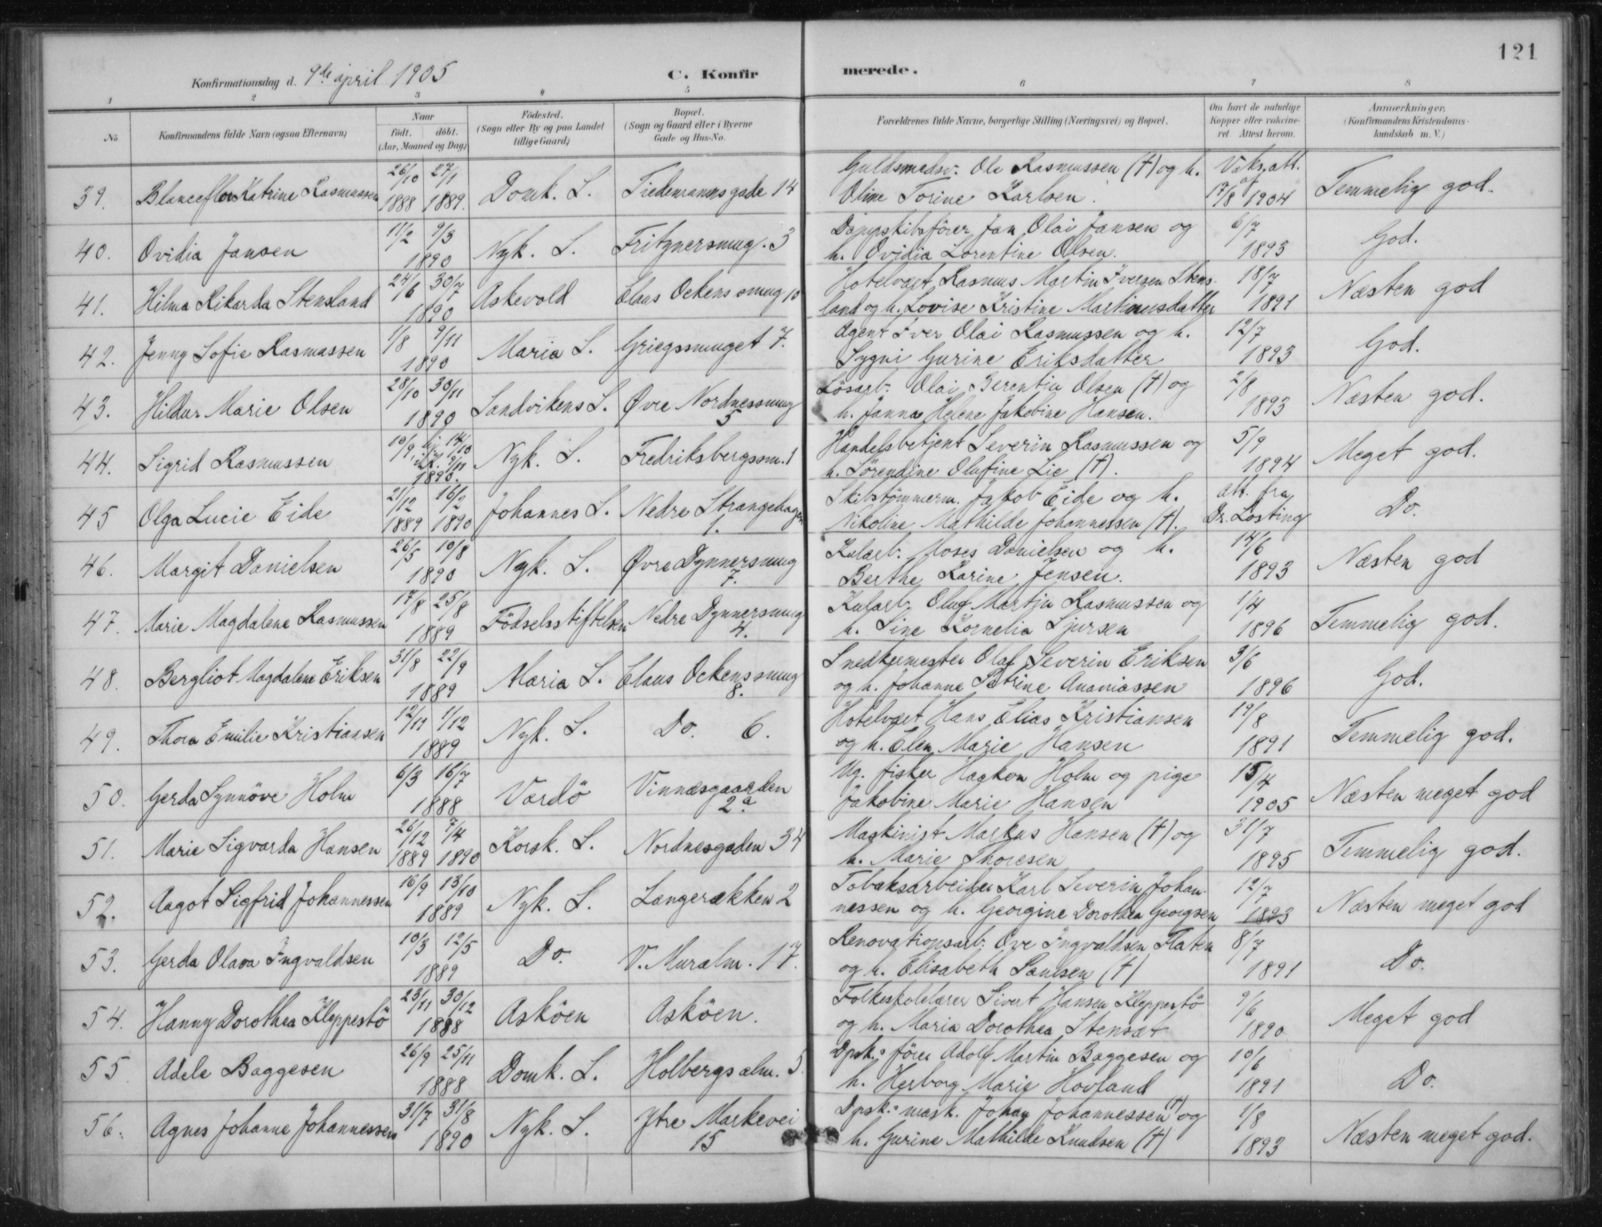 121
Konfirmationsdag d. 9de april 1905
C. Konfirmerede.
1 2 3 4 5 6 7 8
No
Konfirmandens fulde Navn (ogsaa Efternavn)
Naar født. døbt. (Aar, Maaned og Dag)
Fødested. (Sogn eller By og paa Landet tillige Gaard)
Bopæl. (Sogn og Gaard eller i Byerne Gade og Hus-No.
Forældrenes fulde Navne, borgerlige Stilling (Næringsvei) og Bopæl.
Om havt de naturlige Kopper eller vakcineret Attest herom.
Anmærkninger. (Konfirmandens Kristendomskundskab m. V.)
39. Blanceflor Katrine Rasmussen 26/10 1888 27/1 1889. Domk. S. Tiedemannsgade 14 Guldsmedsv. Ole Rasmussen (†) og h. Oline Torine Karlsen. Vaks.att. af 17/8 1904 Temmelig god.
40. Ovidia Jansen 11/2 9/3 1890 Nyk. S. Fritznersmug. 3 Dampskibsfører Jan Olai Jansen og h. Ovidia Lorentine Olsen. 6/7 1893 God.
41. Hilma Rikarda Stensland 24/6 30/7 1890 Askevold Claus Ockens smug 10 Hotelvært Rasmus Martin Iversen Stensland og h. Lovise Kristine Martinusdatter 18/7 1891 Næsten god
42. Jenny Sofie Rasmussen 1/8 9/11 1890 Maria S. Griegssmuget 7. Agent Iver Olai Rasmussen og h. Sygni Gurine Eriksdatter 12/7 1893 God.
43. Hildur Marie Olsen 28/10 30/11 1890 Sandvikens S. Øvre Nordnessmug 5 Løsarb. Olai Berentin Olsen (†) og h. Janna Helene Jakobine Hansen. 2/8 1893 Næsten god.
44. Sigrid Rasmussen 10/9 14/10 9/11 1890. Nyk. S. Fredriksbergssm. 1 Handelsbetjent Severin Rasmussen og h. Sørendine Olufine Lie (†). 5/9 1894 Meget god.
45 Olga Lucie Eide 21/12 1889 16/2 1890 Johannes S. Nedre Strangehagen 1. Skibstømmerm. Jakob Eide og h. Nikoline Mathilde Johannessen (†). att. fra Dr. Losting Do.
46. Margit Danielsen 26/5 10/8 1890 Nyk. S. Øvre Dynnersmug 7. Kularb. Moses Danielsen og h. Berthe Karine Jensen. 14/6 1893 Næsten god
47. Marie Magdalene Rasmussen 17/8 25/8 1889 Fødselsstiftelsen Nedre Dynnersmug 4. Kularb. Oluf Martin Rasmussen og h. Sine Kornelia Sjursen 1/4 1896 Temmelig god.
48. Bergliot Magdalene Eriksen 31/8 22/9 1889 Maria S. Claus Ockenssmug 8. Snedkermester Olaf Severin Eriksen og h. Johanne Petrine Ananiassen 3/6 1896 God.
49. Thora Emilie Kristiansen 12/11 1/12 1889 Nyk. S. Do. 6. Hotelvært Hans Elias Kristiansen og h. Elen Marie Hansen 19/8 1891 Temmelig god.
50. Gerda Synnøve Holm 6/3 16/7 1888 Vardö Vinnæsgaarden 2a Ug. fisker Haakon Holm og pige Jakobine Marie Hansen 15/4 1905 Næsten meget god
51. Marie Sigvarda Hansen 26/12 1889 7/4 1890 Korsk. S. Nordnesgaden 34 Maskinist Markus Hansen (†) og h. Marie Thoresen 31/7 1895 Temmelig god.
52. Aagot Sigfrid Johannessen 16/9 13/10 1889 Nyk. S. Langerækken 2 Tobaksarbeider Karl Severin Johannessen og h. Georgine Dorothea Georgsen 12/7 1893 Næsten meget god
53. Gerda Olava Ingvaldsen 10/3 12/5 1889 Do. V. Muralm. 17. Renovationsarb. Ove Ingvaldsen Flaten og h. Elisabeth Samsen (†) 8/7 1891 Do.
54. Hanny Dorothea Kleppestö 23/11 30/12 1888 Asköen Asköen. Folkeskolelærer Sivert Hansen Kleppestö og h. Maria Dorothea Stensæt 9/6 1890 Meget god
55. Adele Baggesen 26/9 25/11 1888 Domk. S. Holbergsalm. 5. Dpsk. fører Adolf Martin Baggesen og h. Herborg Marie Hovland 10/6 1891 Do.
56. Agnes Johanne Johannessen 31/7 31/8 1890 Nyk. S. Ytre Markevei 15 Dpsk. mask. Johan Johannessen (†) og h. Gurine Mathilde Knudsen (†) 1/8 1893 Næsten meget god.